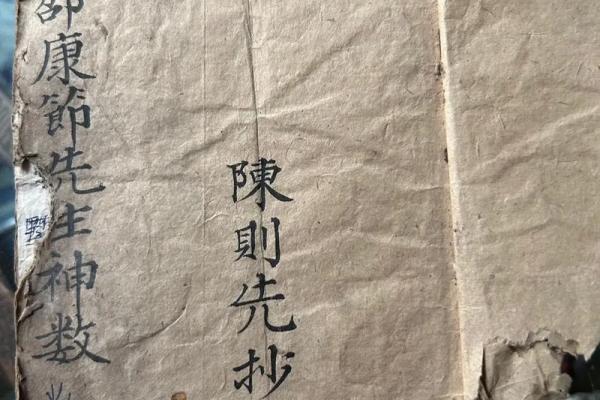 陳則先抄
邵康節先生神数